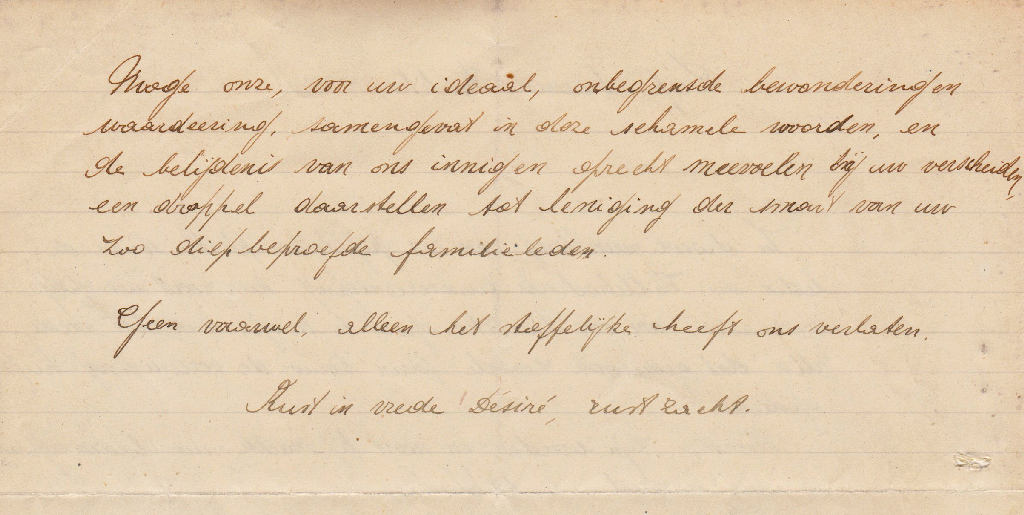 Moge onze, voor uw ideaal, onbegrensde bewondering en
waardeering, samengevat in deze schamele woorden, en
de belijdenis van ons innig en oprecht meevoelen bij uw verscheiden,
een droppel daarstellen tot leniging der smart van uw
zoo diep beproefde familieleden.
Geen vaarwel, alleen het stoffelijke heeft ons verlaten.
Rust in vrede Désiré, rust zacht.